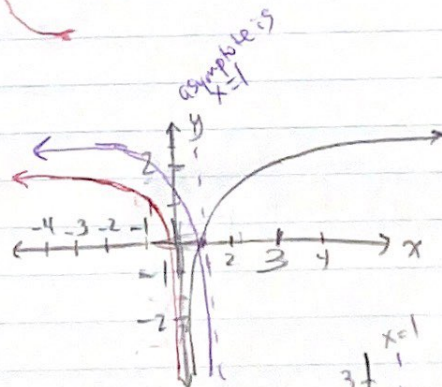 asymptote is
x=1
y
2
-4 -3 -2 -1 2 3 4 x
-1
-2
x=1
3